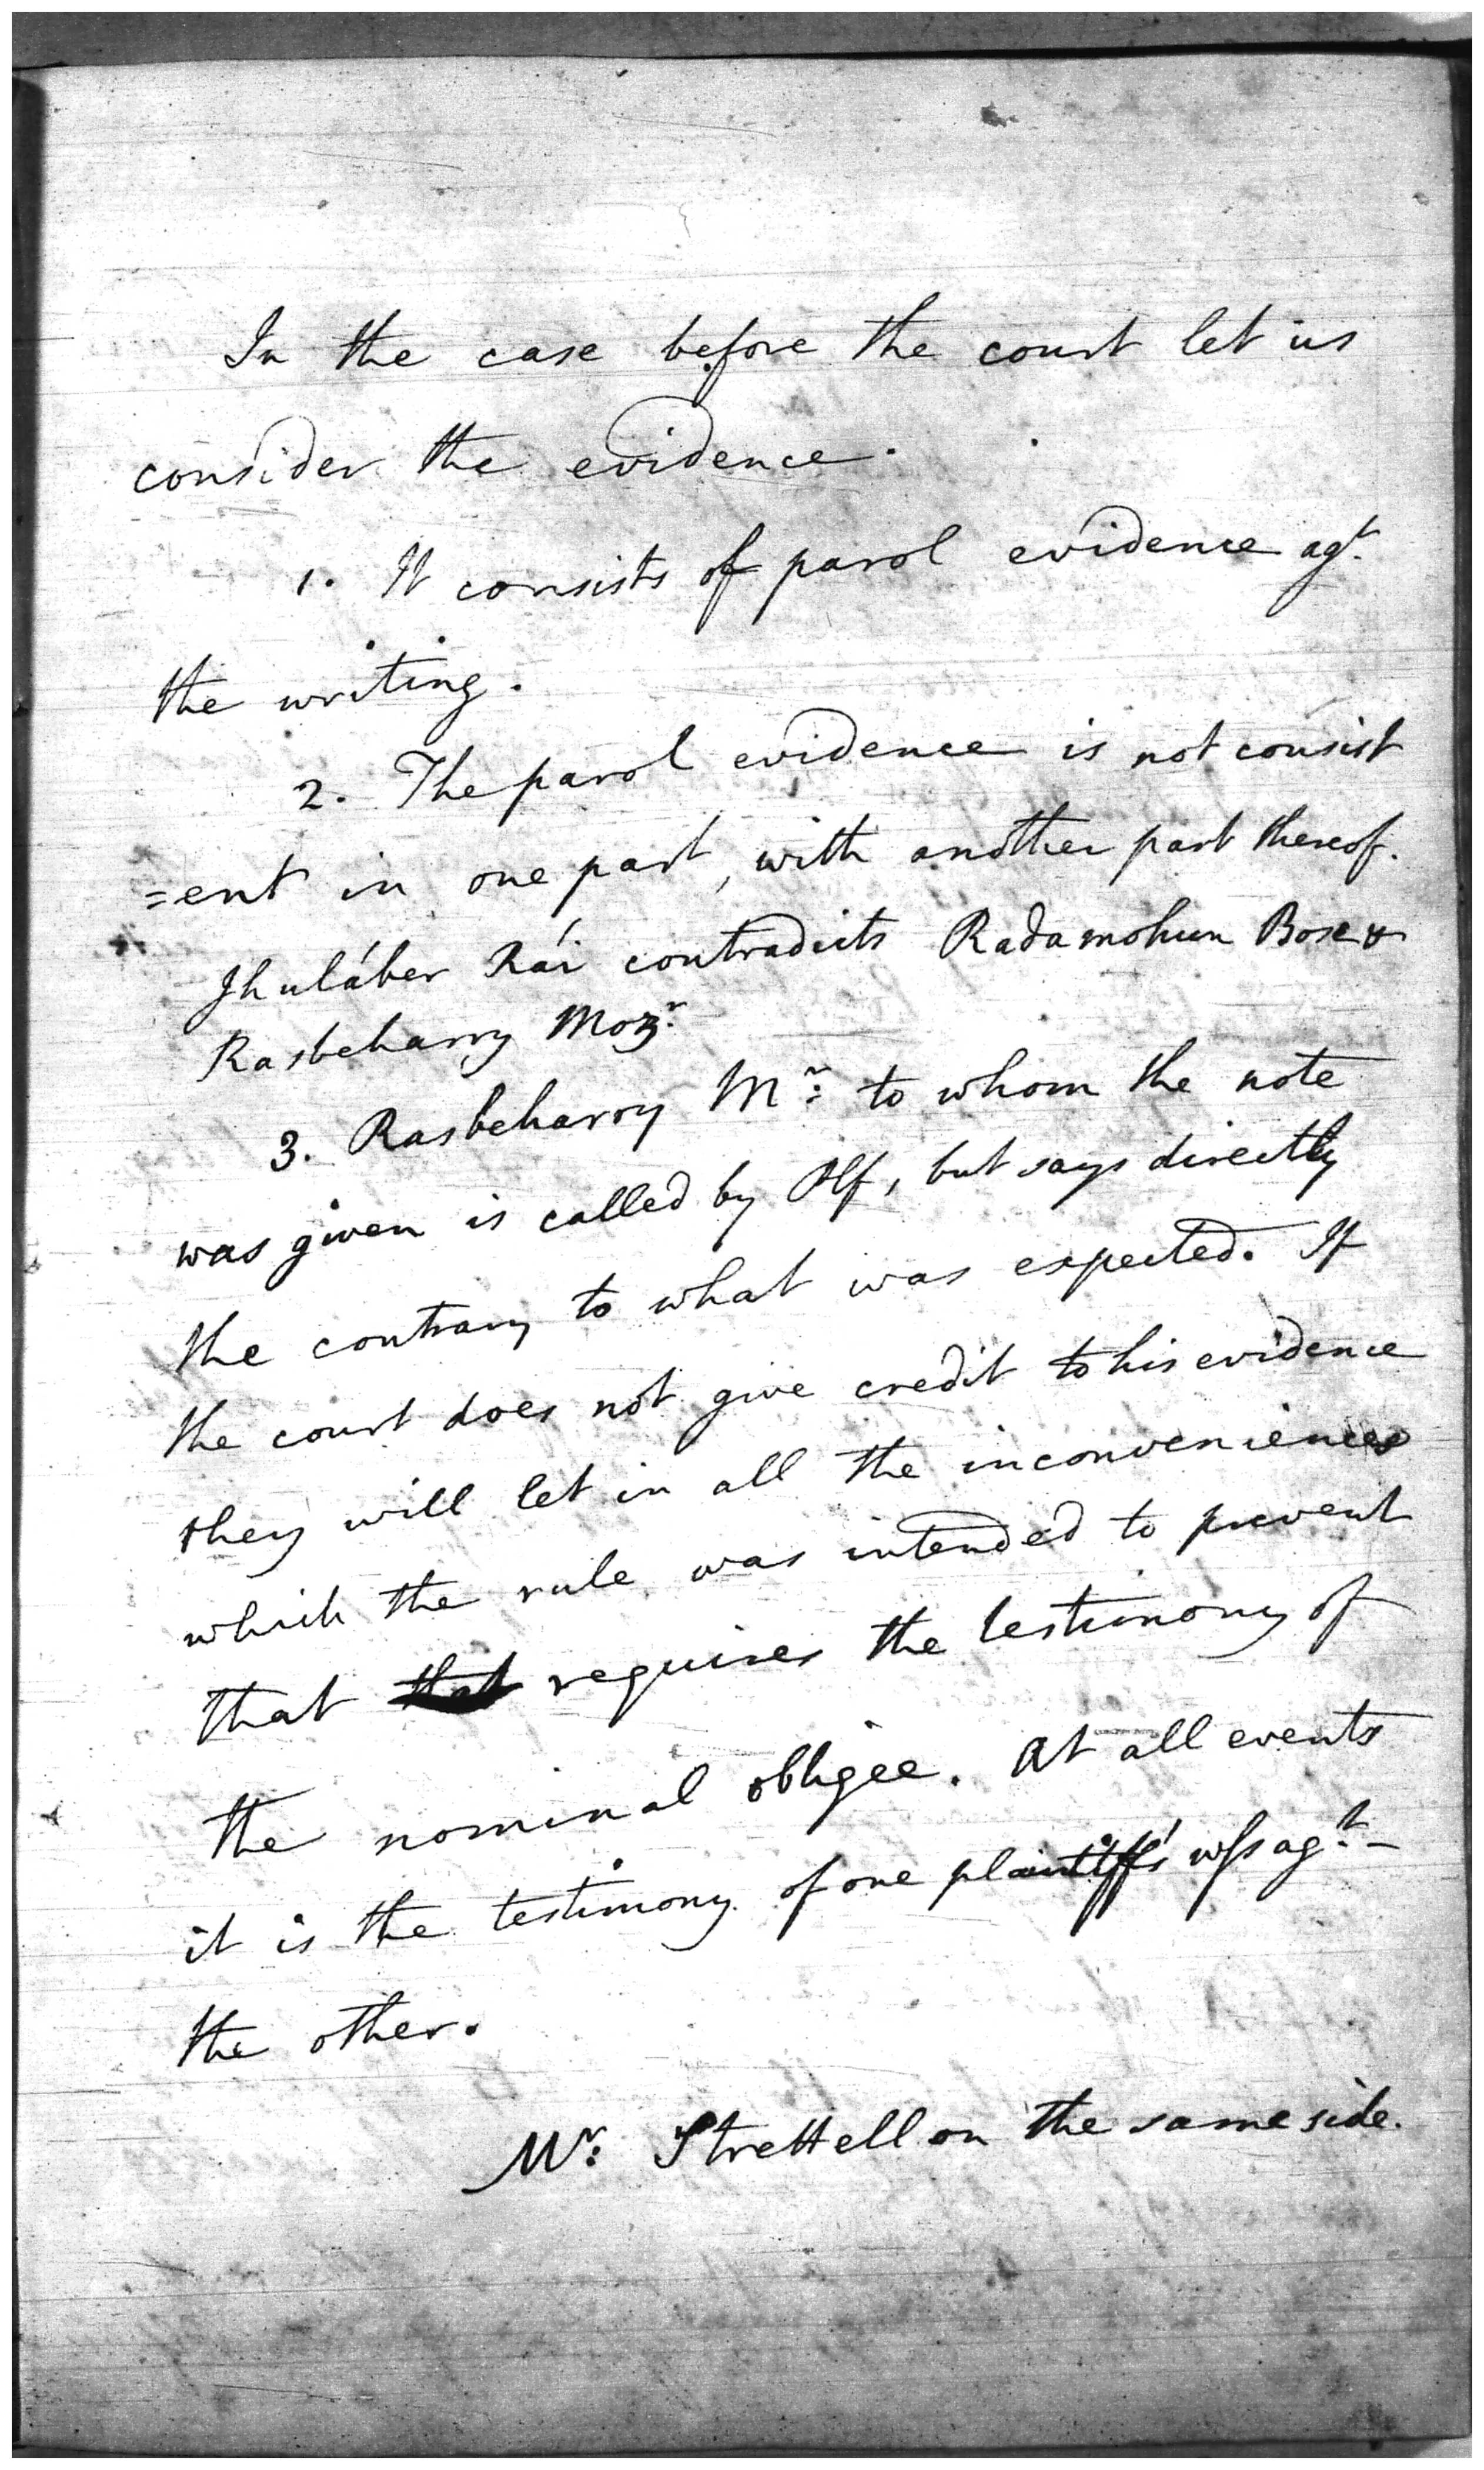 In the case before the court let us
consider the evidence.
1. It consists of parol evidence agt.
the writing.
2. The parol evidence is not consist
=ent in one part, with another part thereof.
Jhuláber Rái contradicts Radamohun Bose &
Rasbeharry Mozr.
3. Rasbeharry Mr. to whom the note
was given is called by Plf, but says directly
the contrary to what was expected. If
the court does not give credit to his evidence
they will let in all the inconveniences
which the rule was intended to prevent
that that requires the testimony of
the nominal obligee. At all events
it is the testimony of one plaintiff's wss agt.
the other.
Mr. Strettell on the same side.